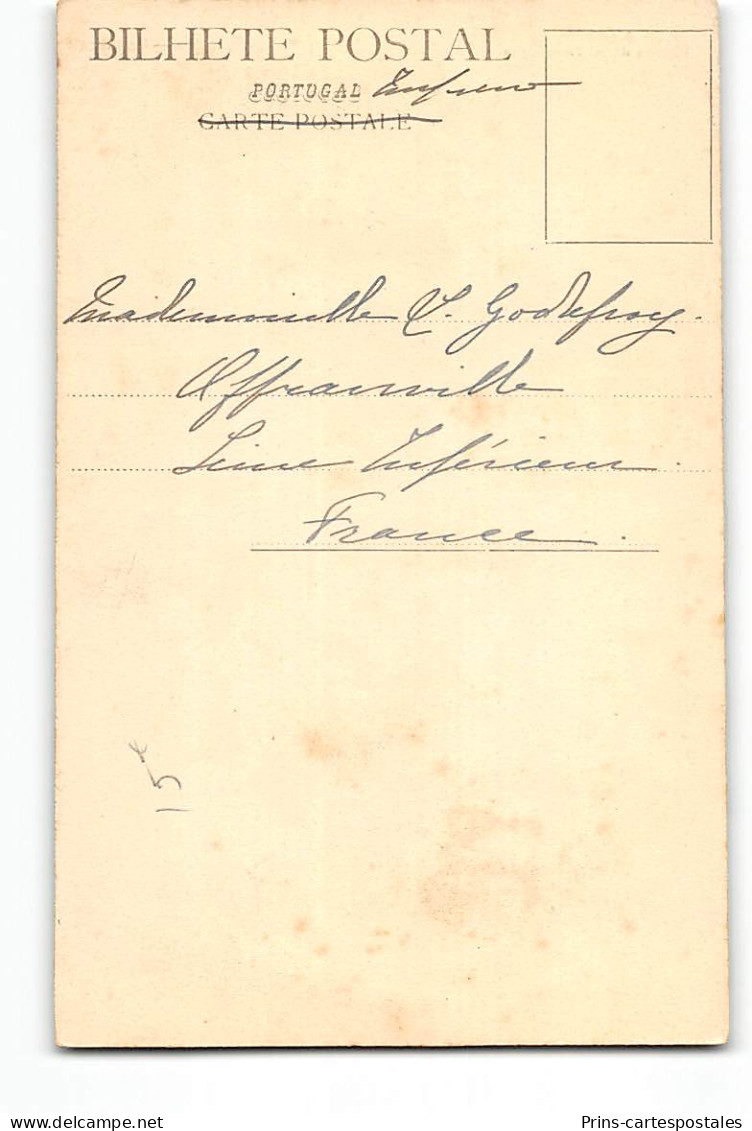 BILHETE POSTAL
PORTUGAL
CARTE POSTALE
Mademoiselle Godefroy.
Offranville
Seine Inférieure.
France.
15
delcampe.net
Prins-cartespostales